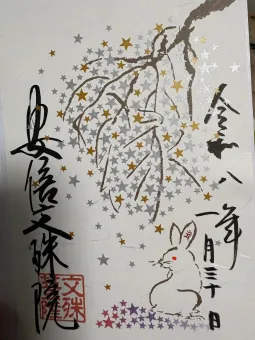 令和八年
一月三十日
安倍文殊院
文殊院